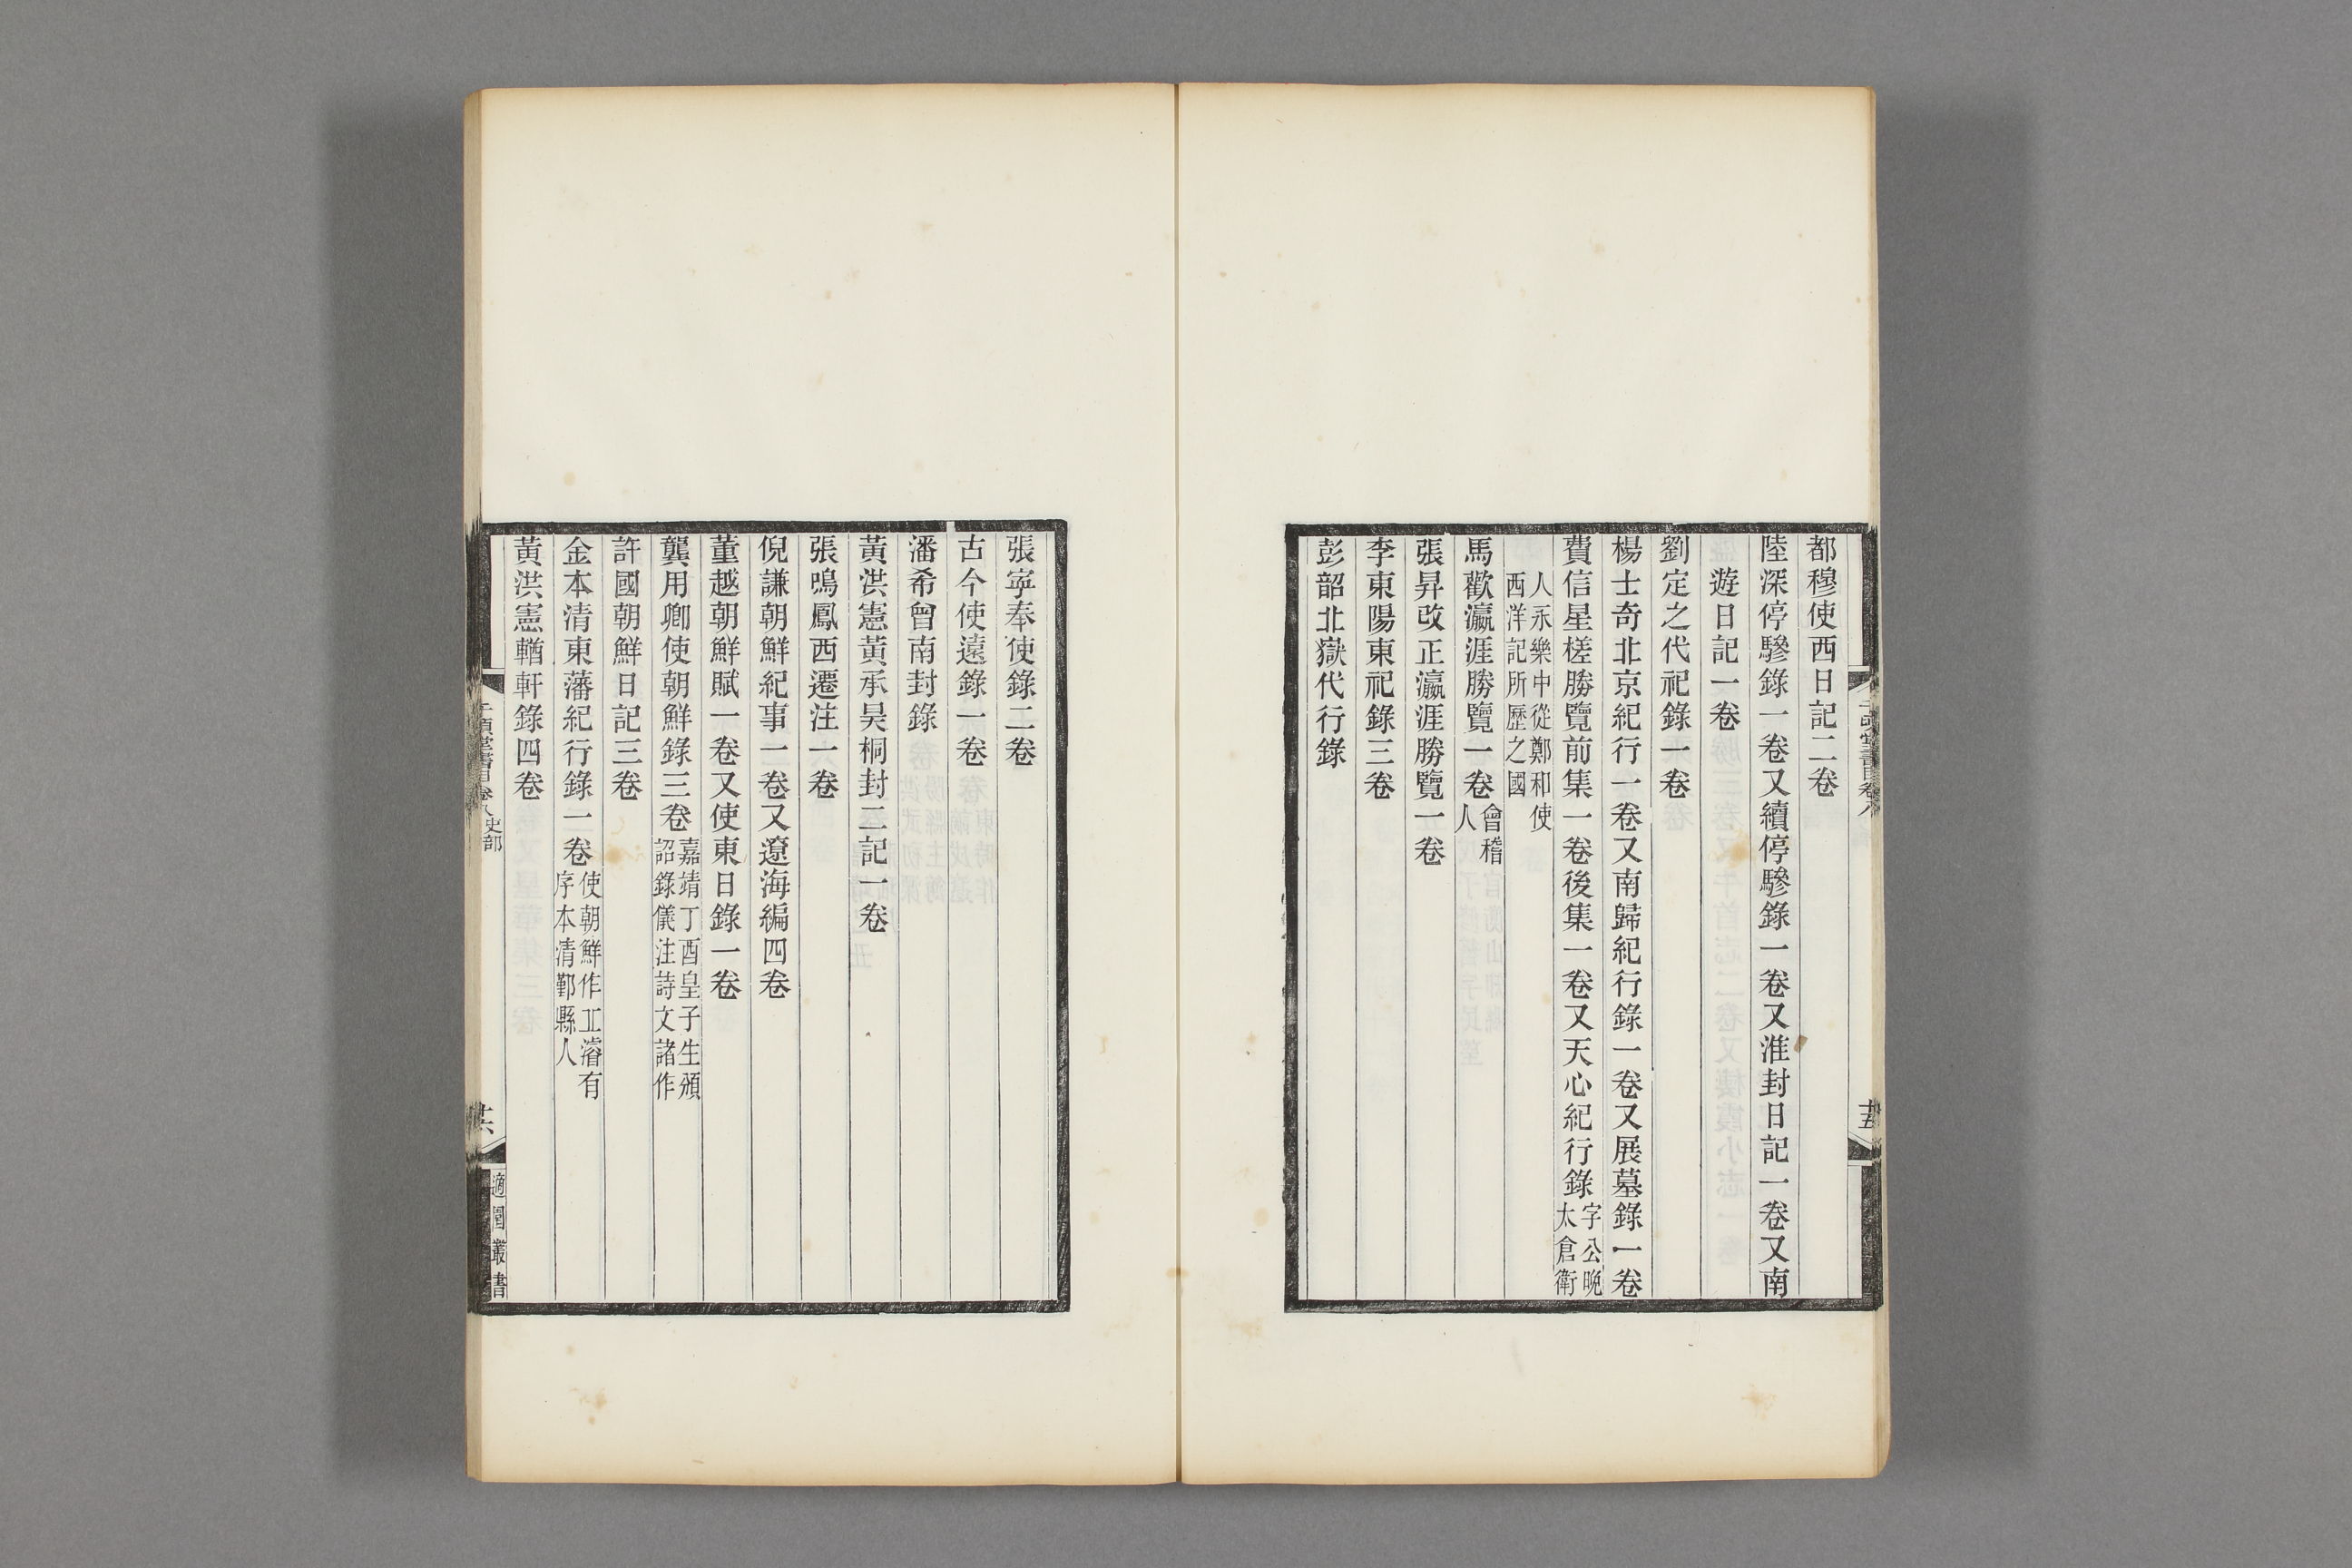 都穆使西日記二卷
陸深停驂錄一卷又續停驂錄一卷又淮封日記一卷又南
遊日記一卷
劉定之代祀錄一卷
楊士奇北京紀行一卷又南歸紀行錄一卷又展墓錄一卷
費信星槎勝覽前集一卷後集一卷又天心紀行錄字公晚太倉衛
人永樂中從鄭和使西洋記所歷之國
馬歡瀛涯勝覽一卷會稽人
張昇改正瀛涯勝覽一卷
李東陽東祀錄三卷
彭韶北嶽代行錄
張寧奉使錄二卷
古今使遠錄一卷
潘希曾南封錄
黃洪憲黃承昊桐封二記一卷
張鳴鳳西遷注一卷
倪謙朝鮮紀事一卷又遼海編四卷
董越朝鮮賦一卷又使東日錄一卷
龔用卿使朝鮮錄三卷嘉靖丁酉皇子生頒詔錄儀注詩文諸作
許國朝鮮日記三卷
金本清東藩紀行錄一卷使朝鮮作江濬有序本清鄞縣人
黃洪憲輶軒錄四卷
千頃堂書目卷八史部
廿六
適園叢書